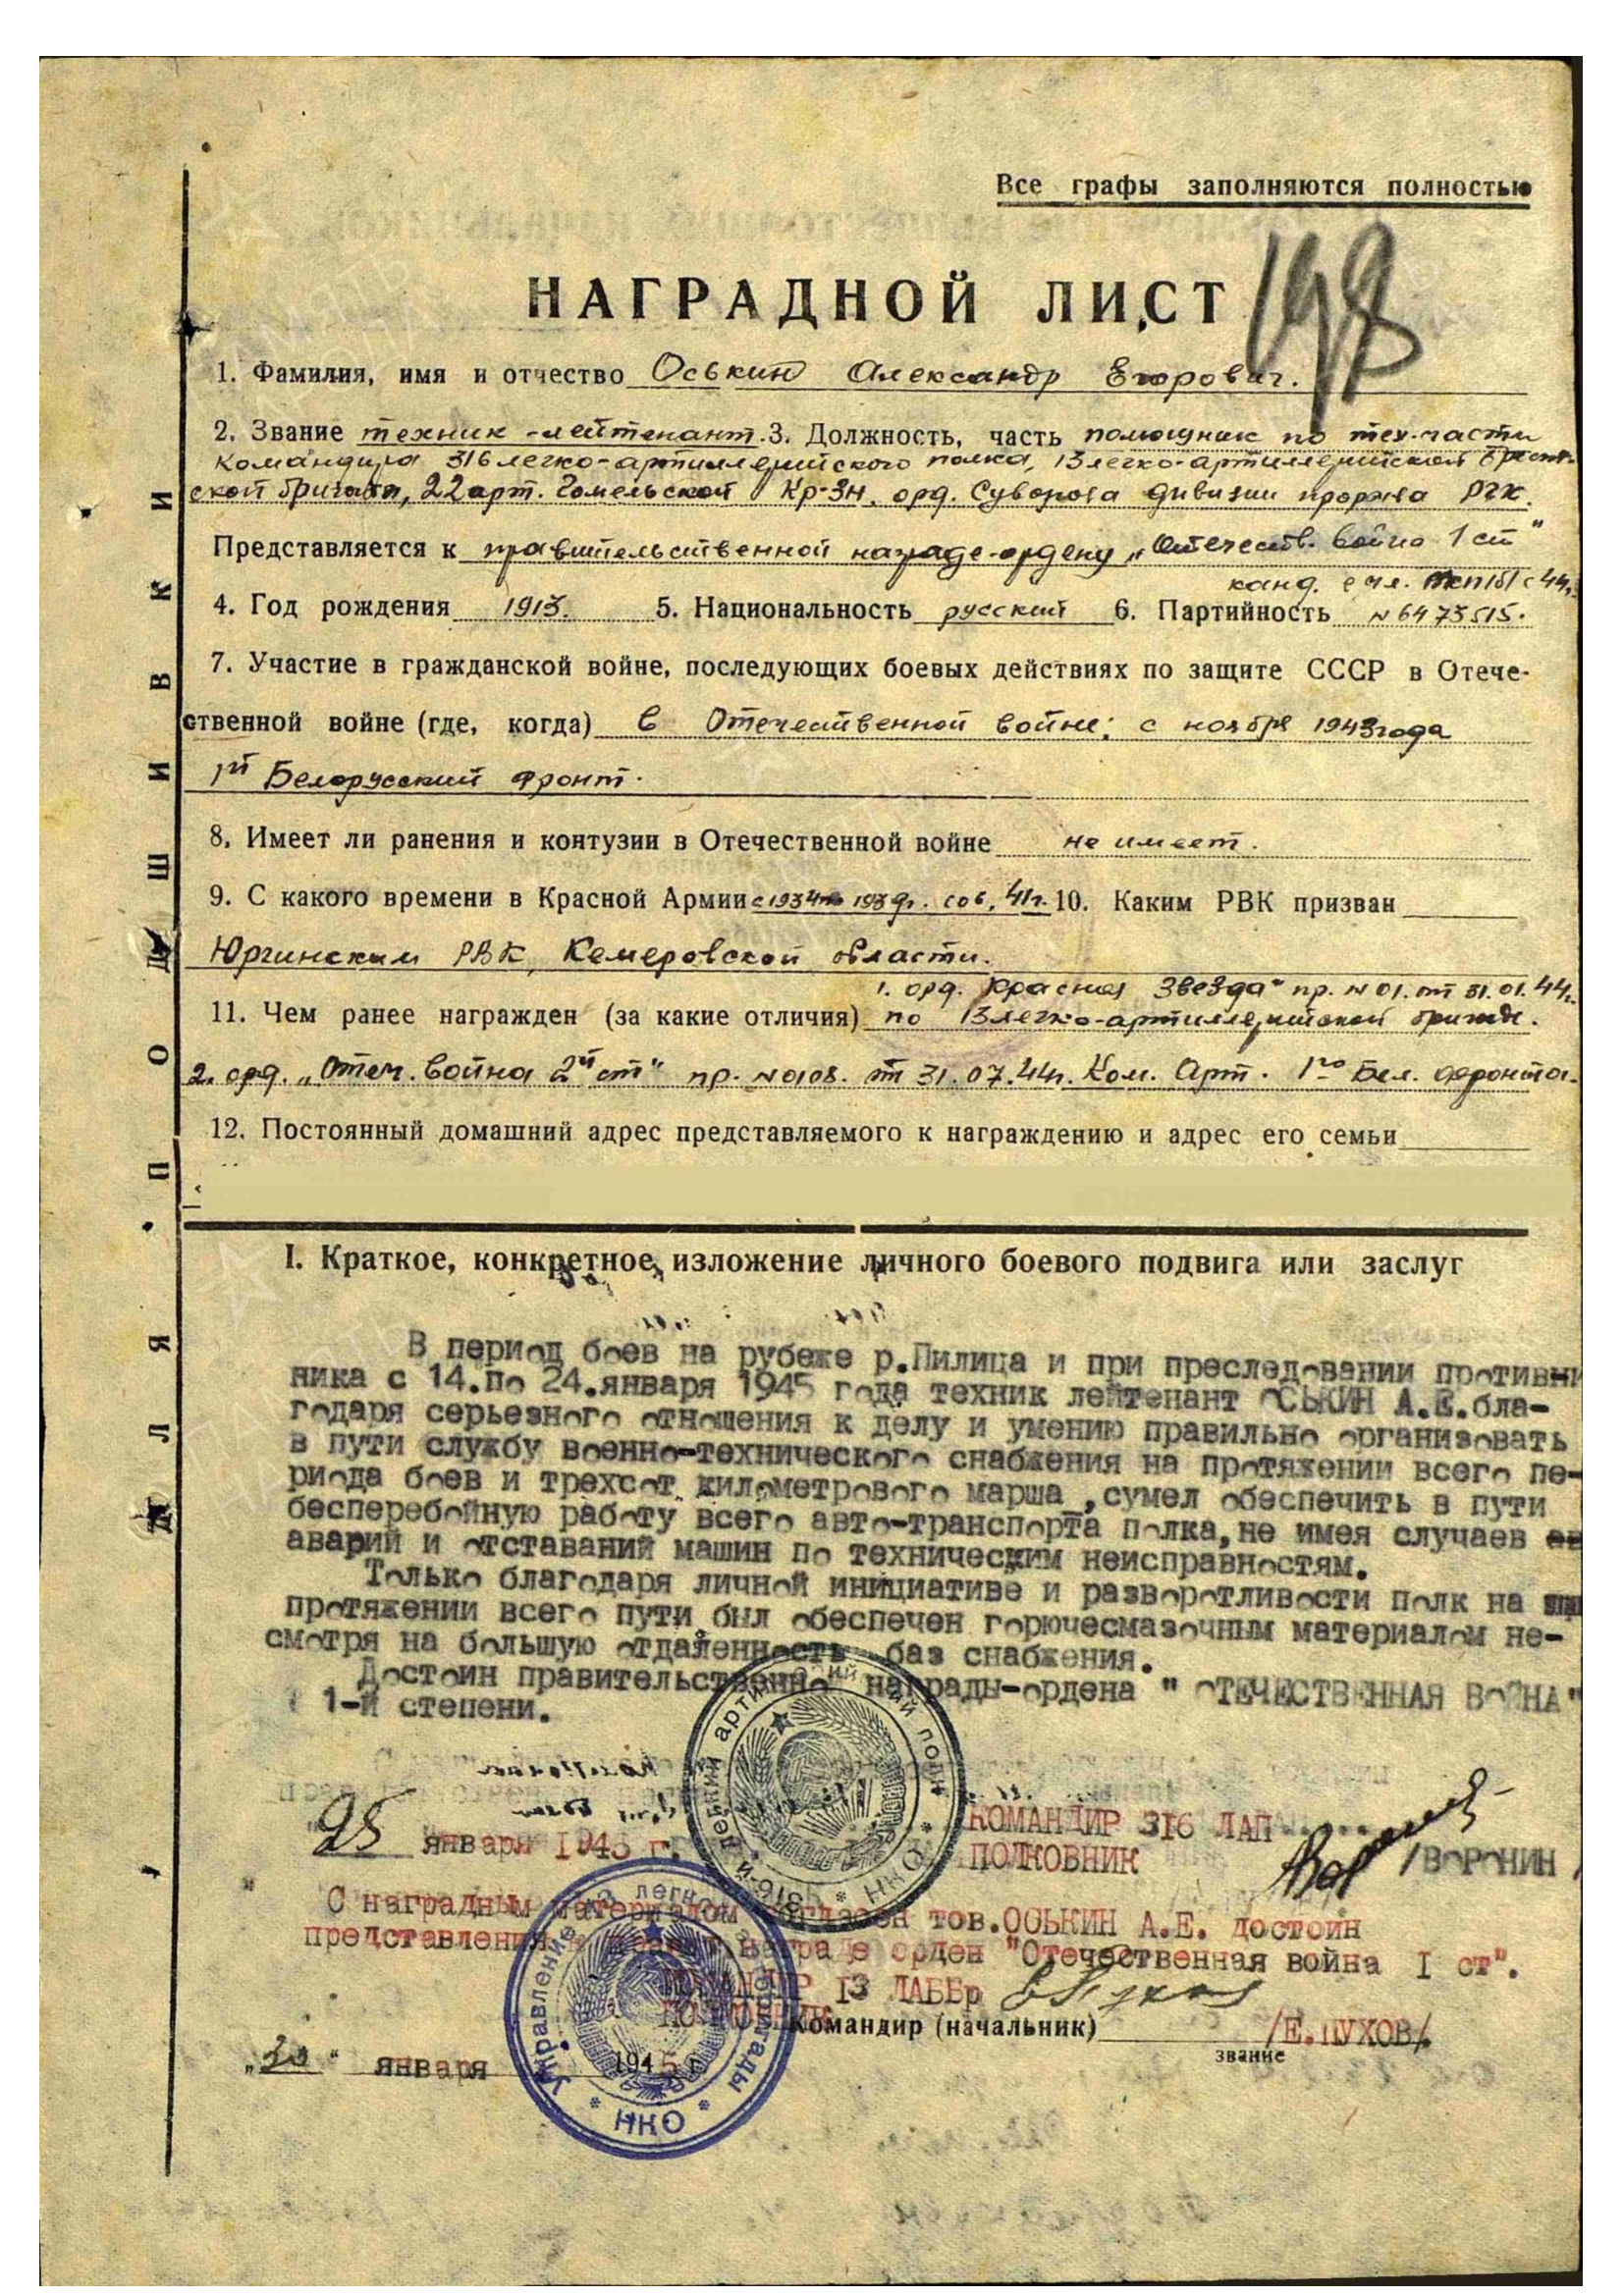 Все графы заполняются полностью
198
НАГРАДНОЙ ЛИСТ
1. Фамилия, имя и отчество Оськин Александр Егорович.
2. Звание техник-лейтенант. 3. Должность, часть помощник по тех.части
командира 316 легко-артиллерийского полка, 13 легко-артиллерийской Брест-
ской бригады, 22 арт. Гомельской Кр-Зн. орд. Суворова дивизии прорыва РГК.
Представляется к правительственной награде-ордену „Отечеств. война 1 ст"
канд. с 44г.
4. Год рождения 1913. 5. Национальность русский 6. Партийность №6473515.
7. Участие в гражданской войне, последующих боевых действиях по защите СССР в Отече-
ственной войне (где, когда) в Отечественной войне; с ноября 1943 года
1й Белорусский фронт.
8. Имеет ли ранения и контузии в Отечественной войне не имеет.
9. С какого времени в Красной Армии с 1934 по 1939г. с 06. 41г. 10. Каким РВК призван
Юргинским РВК, Кемеровской области.
1. орд. Красная Звезда" пр. №01. от 31.01.44г.
11. Чем ранее награжден (за какие отличия) по 13 легко-артиллерийской бригаде.
2. орд. „Отеч. война 2й ст" пр. №0108. от 31.07.44г. Ком. Арт. 1го Бел. фронта.
12. Постоянный домашний адрес представляемого к награждению и адрес его семьи
ДЛЯ ПОДШИВКИ
I. Краткое, конкретное, изложение личного боевого подвига или заслуг
В период боев на рубеже р.Пилица и при преследовании противни
ника с 14.по 24.января 1945 года техник лейтенант ОСЬКИН А.Е.бла-
годаря серьезного отношения к делу и умению правильно организовать
в пути службу военно-технического снабжения на протяжении всего пе-
риода боев и трехсот километрового марша ,сумел обеспечить в пути
бесперебойную работу всего авто-транспорта полка,не имея случаев ав
аварий и отставаний машин по техническим неисправностям.
Только благодаря личной инициативе и разворотливости полк на
протяжении всего пути был обеспечен горючесмазочным материалом не-
смотря на большую отдаленность баз снабжения.
Достоин правительственной награды-ордена " ОТЕЧЕСТВЕННАЯ ВОЙНА"
1-й степени.
25 января 1945 г.
КОМАНДИР 316 ЛАП
ПОЛКОВНИК /ВОРОНИН/
316-й легкий артиллерийский полк * НКО *
С наградным материалом согласен тов.ОСЬКИН А.Е. достоин
представления к правит.награде орден "Отечественная война I ст".
КОМАНДИР 13 ЛАББр
ПОЛКОВНИК
Командир (начальник) /Е.ПУХОВ/.
звание
„30" января 1945 г.
Управление 13 легко бригады * НКО *